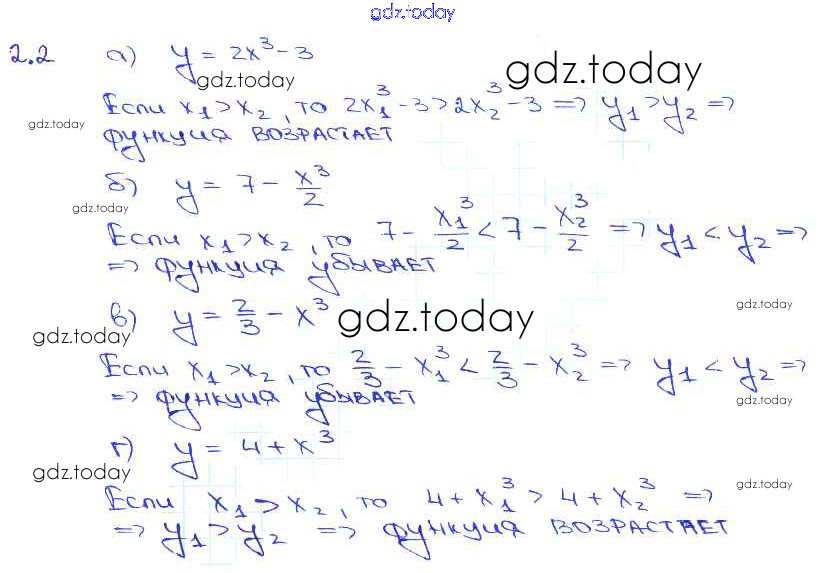 gdz.today
2.2 а) y = 2x³ - 3
gdz.today gdz.today
Если x₁ > x₂, то 2x₁³ - 3 > 2x₂³ - 3 => y₁ > y₂ =>
gdz.today
функция ВОЗРАСТАЕТ
б) y = 7 - x³/2
gdz.today
Если x₁ > x₂, то 7 - x₁³/2 < 7 - x₂³/2 => y₁ < y₂ =>
=> функция убывает
gdz.today
в) y = 2/3 - x³ gdz.today
gdz.today
Если x₁ > x₂, то 2/3 - x₁³ < 2/3 - x₂³ => y₁ < y₂ =>
=> функция убывает gdz.today
г) y = 4 + x³
gdz.today gdz.today
Если x₁ > x₂, то 4 + x₁³ > 4 + x₂³ =>
=> y₁ > y₂ => функция ВОЗРАСТАЕТ